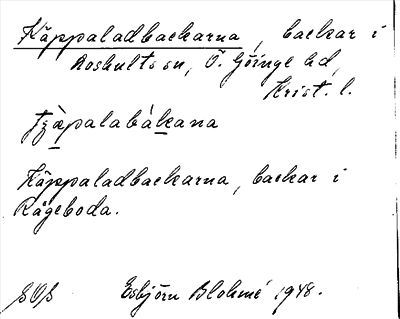 Käppaladbackarna, backar i
Boshults sn, Ö. Göinge hd,
Krist. l.
tzàpalabákana
Käppaladbackarna, backar i
Rågeboda.
SOS Esbjörn Blohmé 1948.